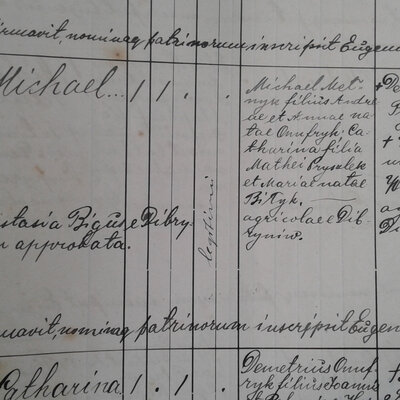 irmavit, nominaq patrinorum inscripsit Eugen
Michael... 1 1 . .
Michael Met-
nyk filius Andre
ae et Annae na-
tae Onufryk. Ca-
tharina filia
Mathei
et Mariae natae
agricolae e Dib-
ryniw.
legitimi
stasia Bigus e Dibry-
n approbata.
rmavit, nominaq patrinorum inscripsit Eugen
Catharina 1 . 1 .
Demetrius Onuf-
ryk filius Joann